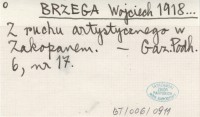 o BRZEGA Wojciech 1918...
Z ruchu artystycznego w
Zakopanem. — Gaz. Podh.
6, nr 17.
57/006/0911